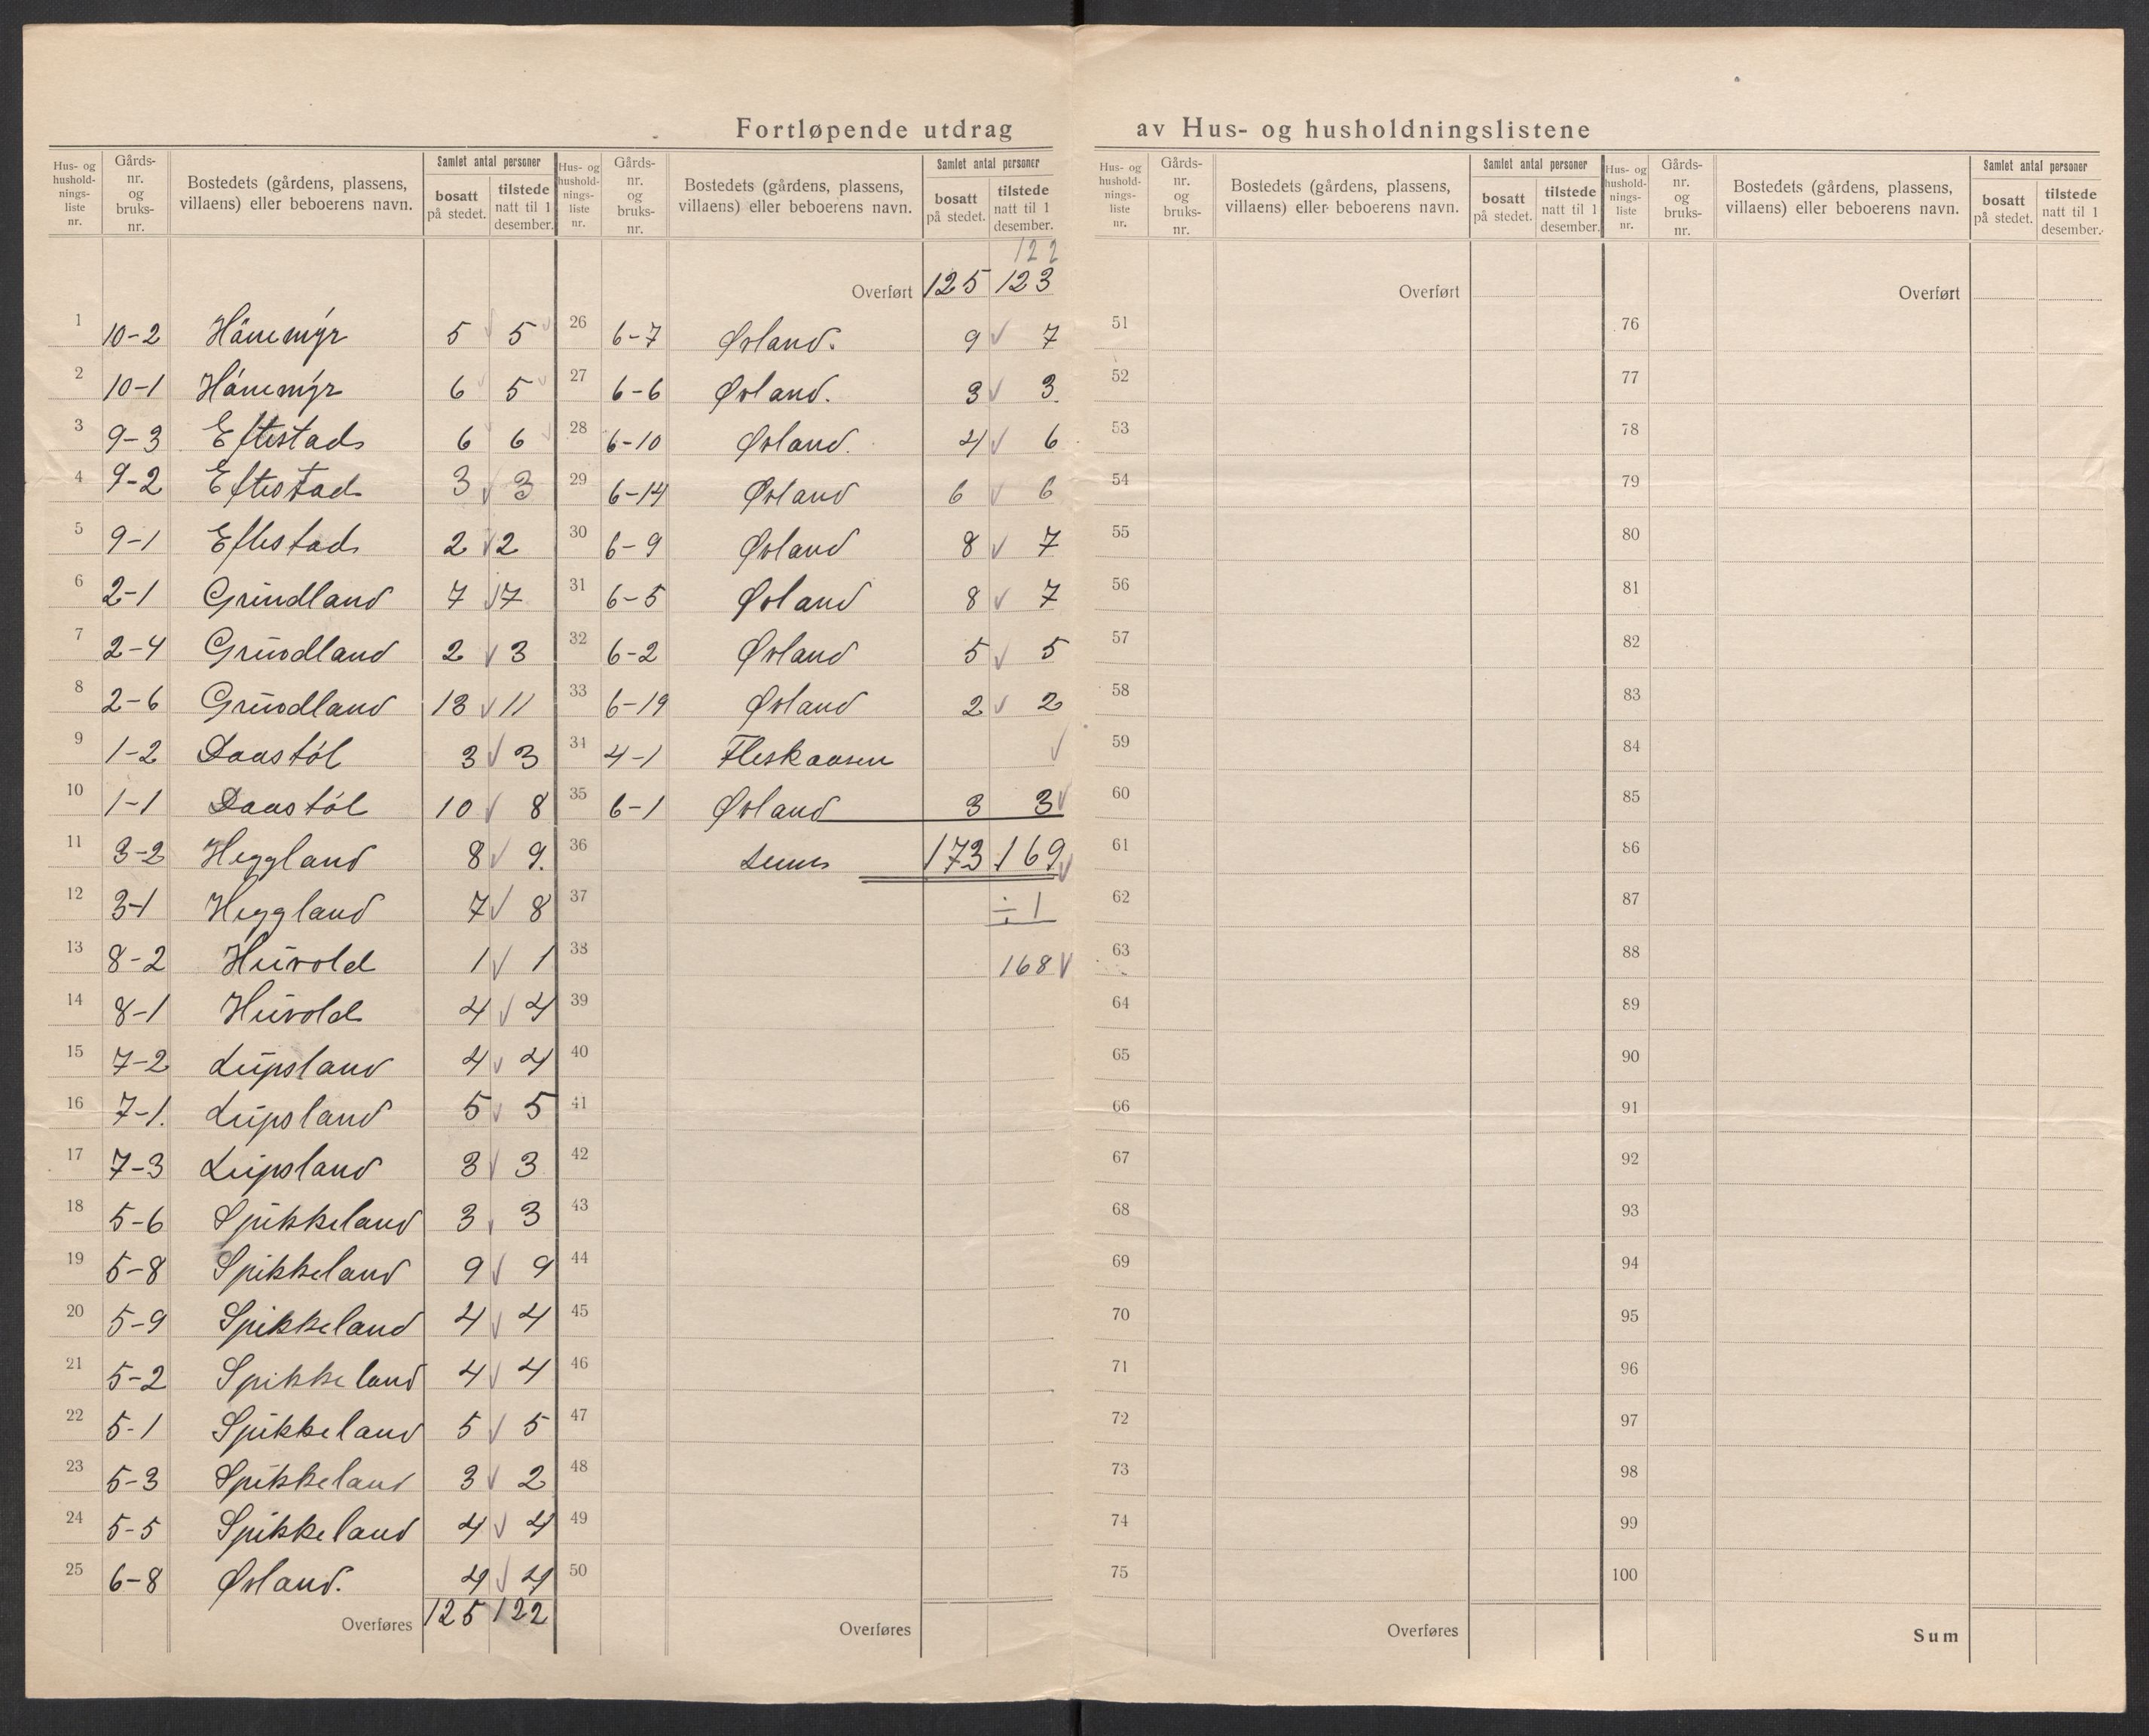 Fortløpende utdrag av Hus- og husholdningslistene
Hus- og hushold-nings-liste nr. | Gårds-nr. og bruks-nr. | Bostedets (gårdens, plassens, villaens) eller beboerens navn. | Samlet antal personer | bosatt på stedet. | tilstede natt til 1 desember.
Hus- og hushold-nings-liste nr. | Gårds-nr. og bruks-nr. | Bostedets (gårdens, plassens, villaens) eller beboerens navn. | Samlet antal personer | bosatt på stedet. | tilstede natt til 1 desember.
1 10-2 Håmmyr 5 5
2 10-1 Håmmyr 6 5
3 9-3 Eftestad 6 6
4 9-2 Eftestad 3 3
5 9-1 Eftestad 2 2
6 2-1 Grindland 7 7
7 2-4 Grindland 2 3
8 2-6 Grindland 13 11
9 1-2 Daastøl 3 3
10 1-1 Daastøl 10 8
11 3-2 Heggland 8 9.
12 3-1 Heggland 7 8
13 8-2 Huvold 1 1
14 8-1 Huvold 4 4
15 7-2 Lupsland 4 4
16 7-1. Lupsland 5 5
17 7-3 Lupsland 3 3
18 5-6 Spikkeland 3 3
19 5-8 Spikkeland 9 9
20 5-9 Spikkeland 4 4
21 5-2 Spikkeland 4 4
22 5-1 Spikkeland 5 5
23 5-3 Spikkeland 3 2
24 5-5 Spikkeland 4 4
25 6-8 Øvland. 4 4
Overføres 125 122
122
Overført 125 123
26 6-7 Øvland. 9 7
27 6-6 Øvland. 3 3
28 6-10 Øvland. 4 6
29 6-14 Øvland 6 6
30 6-9 Øvland 8 7
31 6-5 Øvland 8 7
32 6-2 Øvland 5 5
33 6-19 Øvland 2 2
34 4-1 Fleskaasen
35 6-1 Øvland 3 3
36 Sum 173 169
37 ÷1
38 168
39
40
41
42
43
44
45
46
47
48
49
50
Overføres
Hus- og hushold-nings-liste nr. | Gårds-nr. og bruks-nr. | Bostedets (gårdens, plassens, villaens) eller beboerens navn. | Samlet antal personer | bosatt på stedet. | tilstede natt til 1 desember.
Overført
51
52
53
54
55
56
57
58
59
60
61
62
63
64
65
66
67
68
69
70
71
72
73
74
75
Overføres
Hus- og hushold-nings-liste nr. | Gårds-nr. og bruks-nr. | Bostedets (gårdens, plassens, villaens) eller beboerens navn. | Samlet antal personer | bosatt på stedet. | tilstede natt til 1 desember.
Overført
76
77
78
79
80
81
82
83
84
85
86
87
88
89
90
91
92
93
94
95
96
97
98
99
100
Sum